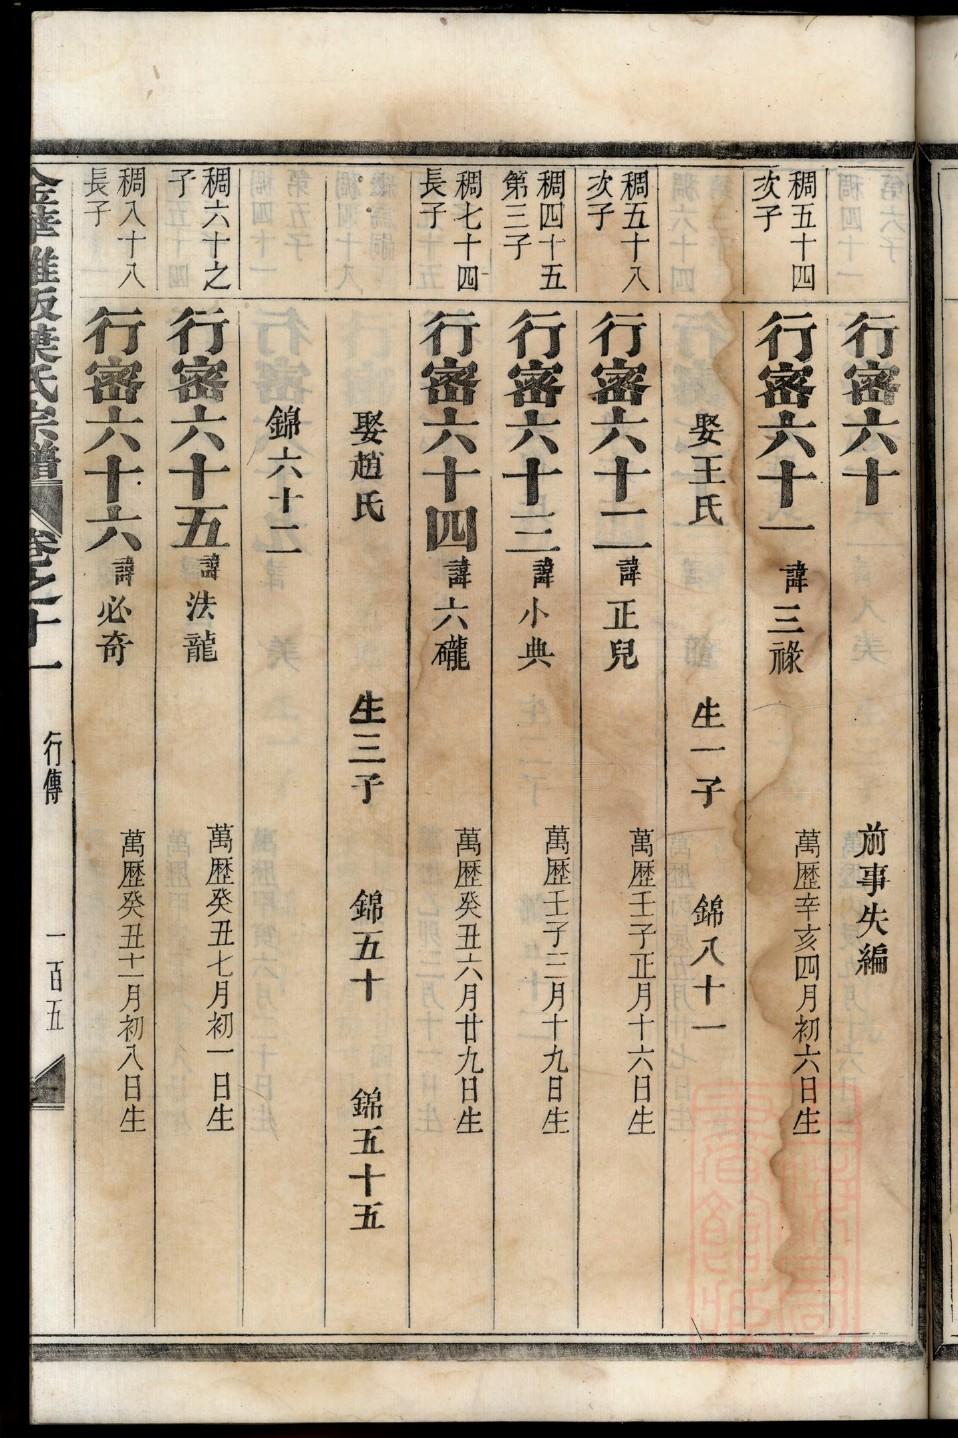 行密六十 前事失編
稠五十四次子
行密六十一 諱三祿 萬歷辛亥四月初六日生
娶王氏 生一子 錦八十一
稠五十八次子
行密六十二 諱正兒 萬歷壬子正月十六日生
稠四十五第三子
行密六十三 諱小典 萬歷壬子三月十九日生
稠七十四長子
行密六十四 諱六礲 萬歷癸丑六月廿九日生
娶趙氏 生三子 錦五十 錦五十五
錦六十二
稠六十之子
行密六十五 諱法龍 萬歷癸丑七月初一日生
稠八十八長子
行密六十六 諱必奇 萬歷癸丑十一月初八日生
金華雅畈葉氏宗譜 卷之十一 行傳 一百五